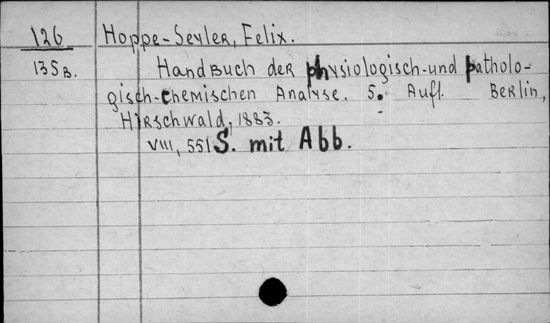 126 Hoppe-Seyler, Felix.
135B. Handbuch der physiologisch-und patholo-
gisch-chemischen Analyse. 5. Aufl. Berlin,
Hirschwald, 1883.
VIII, 551 S. mit Abb.